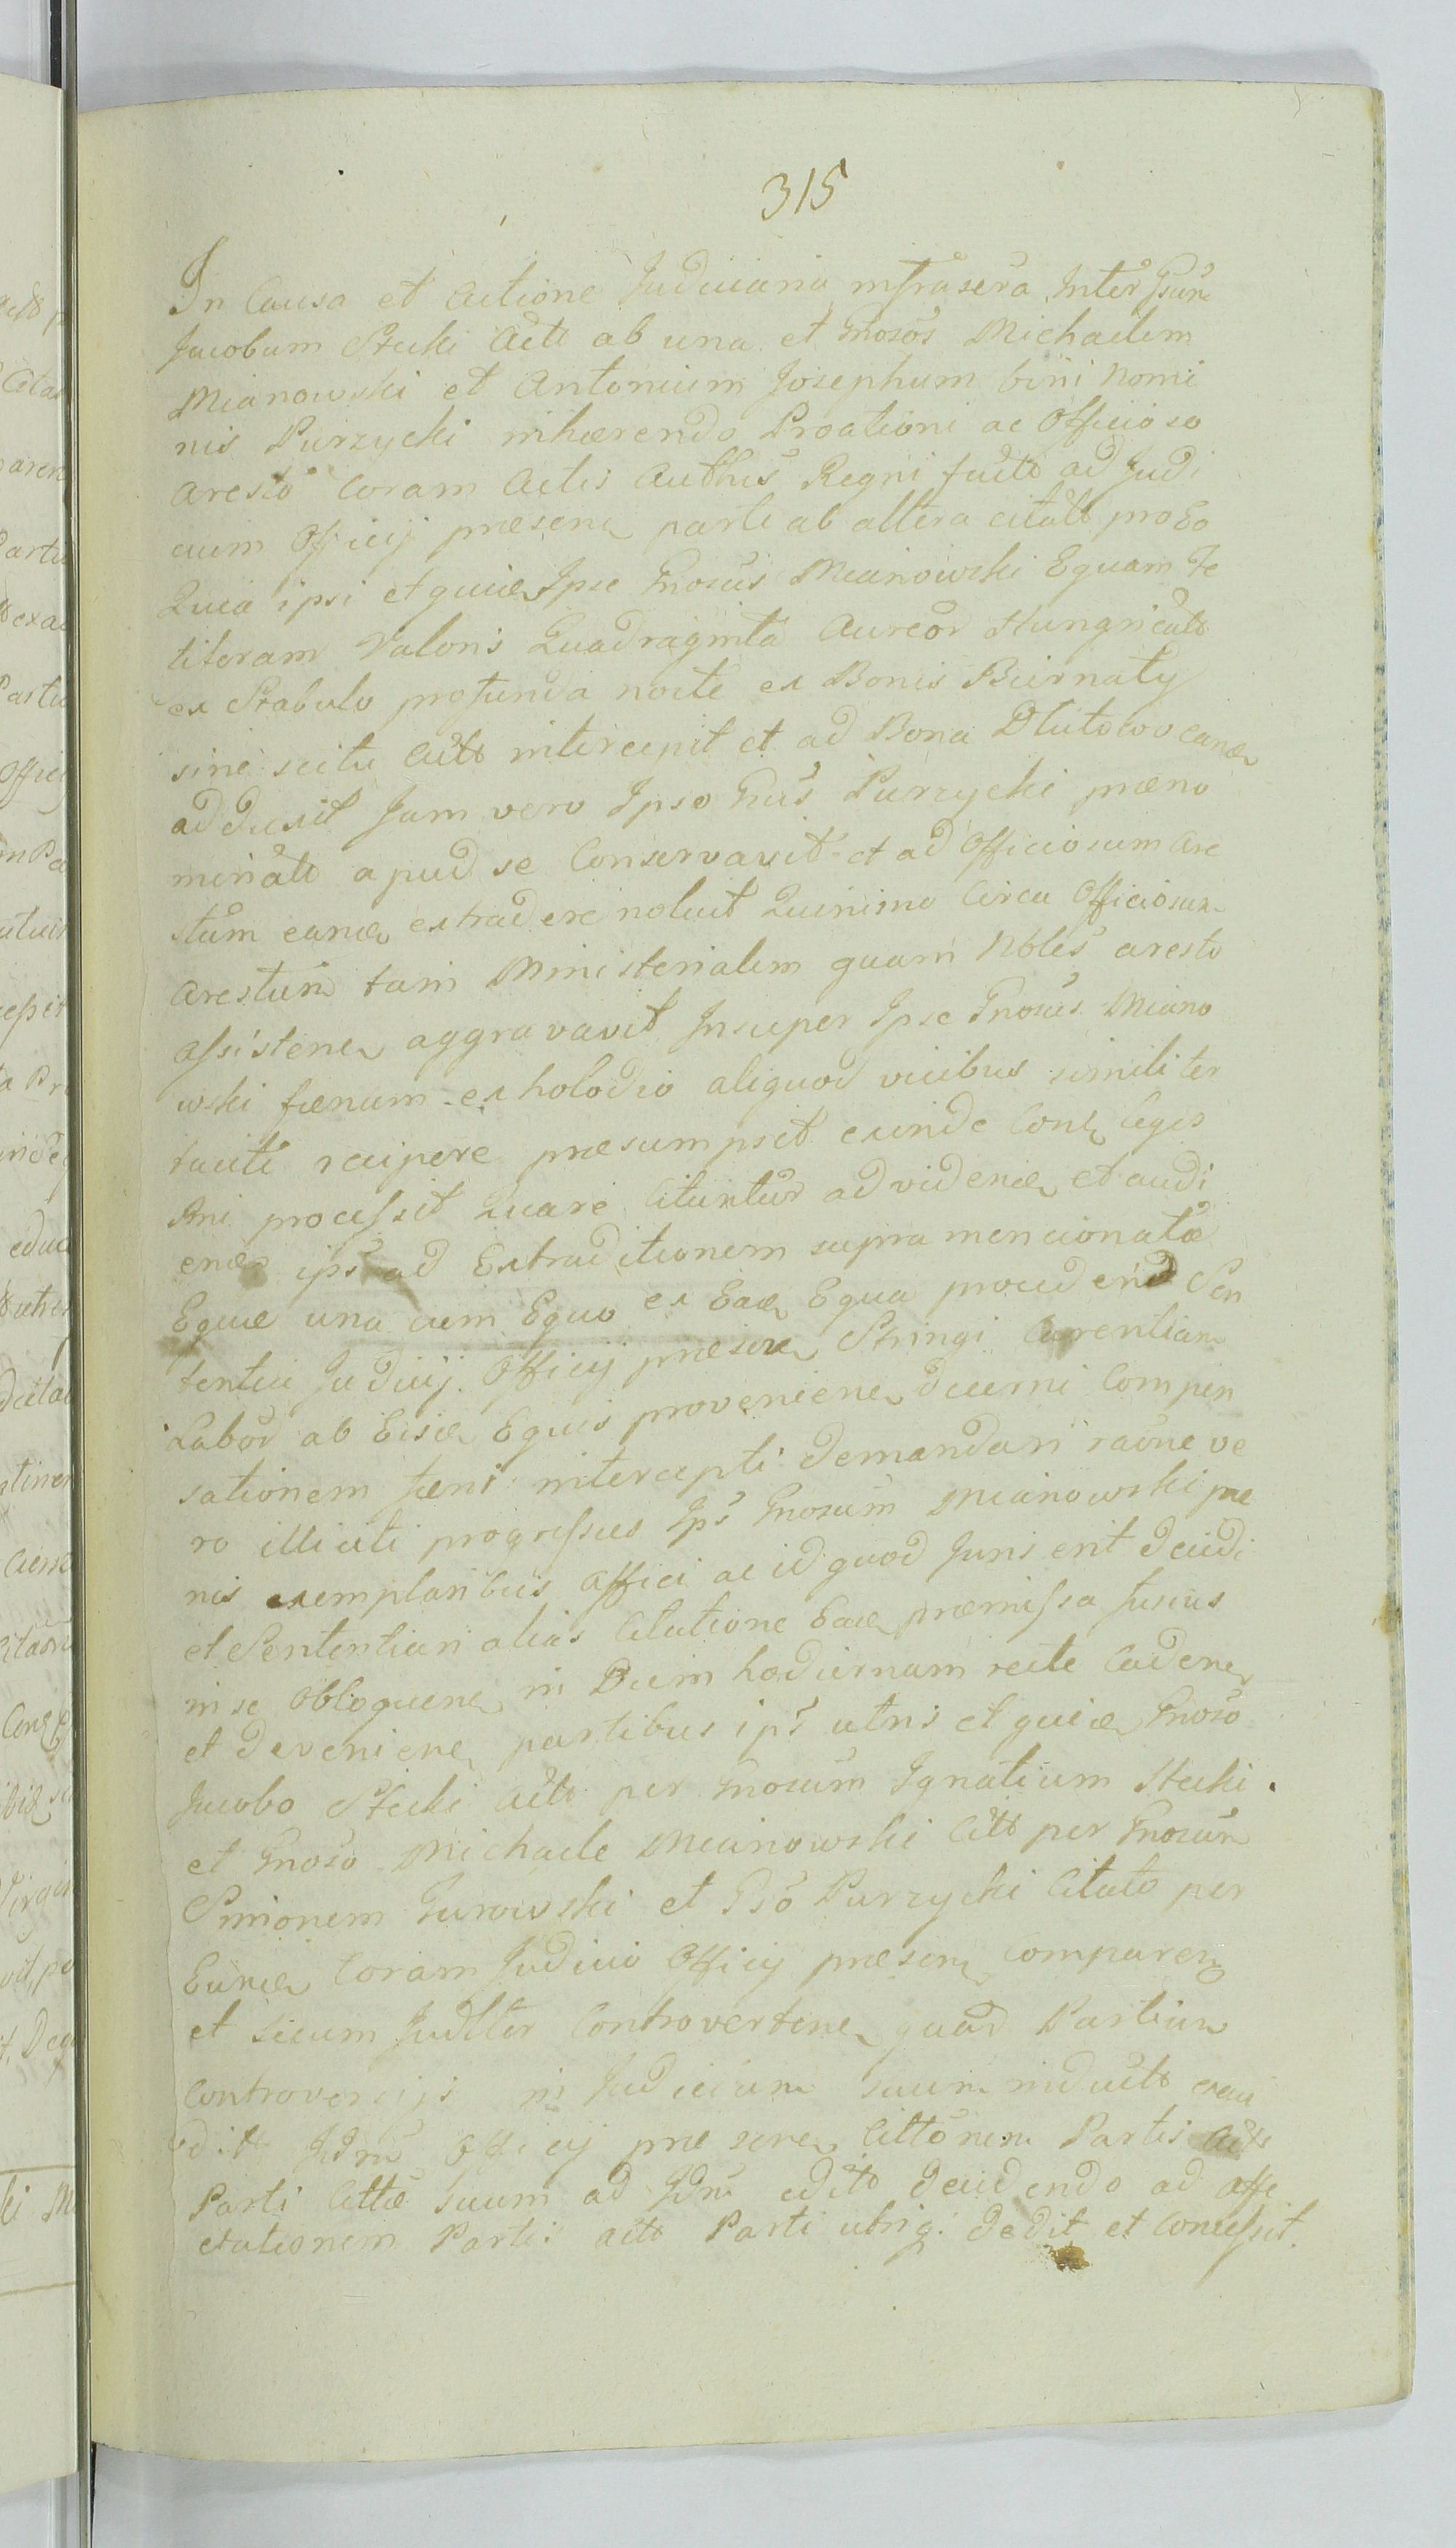 315
In Causa et Actione Judiciaria infrascra Inter Gsum
Jacobum Stecki Actt ab una et Gnosos Michaelem
Mianowski et Antonium Josephum bini Nomi
nis Purzycki inhærendo Proationi ac Officioso
Aresto Coram Actis Authis Regni factt ad Judi
cium Officij præsen parte ab altera citatt pro Eo
Quia ipsi et quidem Ipse Gnosus Mianowski Equam Fe
tteram Valoris Quadraginta Aureor Hungricalt
ex Stabulo profunda nocte ex Bonis Biernaty
sine scitu Actt intercepit et ad Bona Dlutowo eand
adduxit Jam vero Ipse Gnus Purzycki præno
minatt apud se Conservavit et ad Officiosum Are
stum eand extradere noluit Quinimo Circa Officiosum
Arestum tam Ministerialem quam Nobles aresto
assisten aggravavit Insuper Ipse Gnosus Miano
wski fœnum ex holodio aliquod vicibus similiter
tacite recipere præsumpsit exinde Con Leges
Rni processit Quare Citantur ad viden et audi
en ips ad Extraditionem supra mencionatæ
Equæ una cum Equo ex Ead Equa procedend Sen
tentia Judicij Officij præsen Stringi Carentiam
Labor ab Eisd Equis provenien decerni Compen
sationem fœni intercepti demandari raone ve
ro illiciti progressus Ips Gnosum Mianowski pœ
nis exemplaribus affici ac id quod Juris erit decidi
et Sententiari alias Citatione Ead præmissa fusius
in se obloquen in Diem hodiernam recte Caden
et devenien partibus ips utris et quid Gnoso
Jacobo Stecki Actt per Gnosum Ignatium Stecki.
et Gnoso Michaele Mianowski Citt per Gnosum
Simonem Gurowski et Gso Purzycki Citato per
Eund Coram Judicio Officij præsen comparen
et secum Judltter Controverten quar Partium
Controversijs in Judicium suum inductt exau
ditt Jdm Officij præsen Cittonem Partis Actt
Parti Cittæ suum ad Jdm editt decidendo ad affe
ctationem Partis actt Parti utriq: dedit et Concessit.